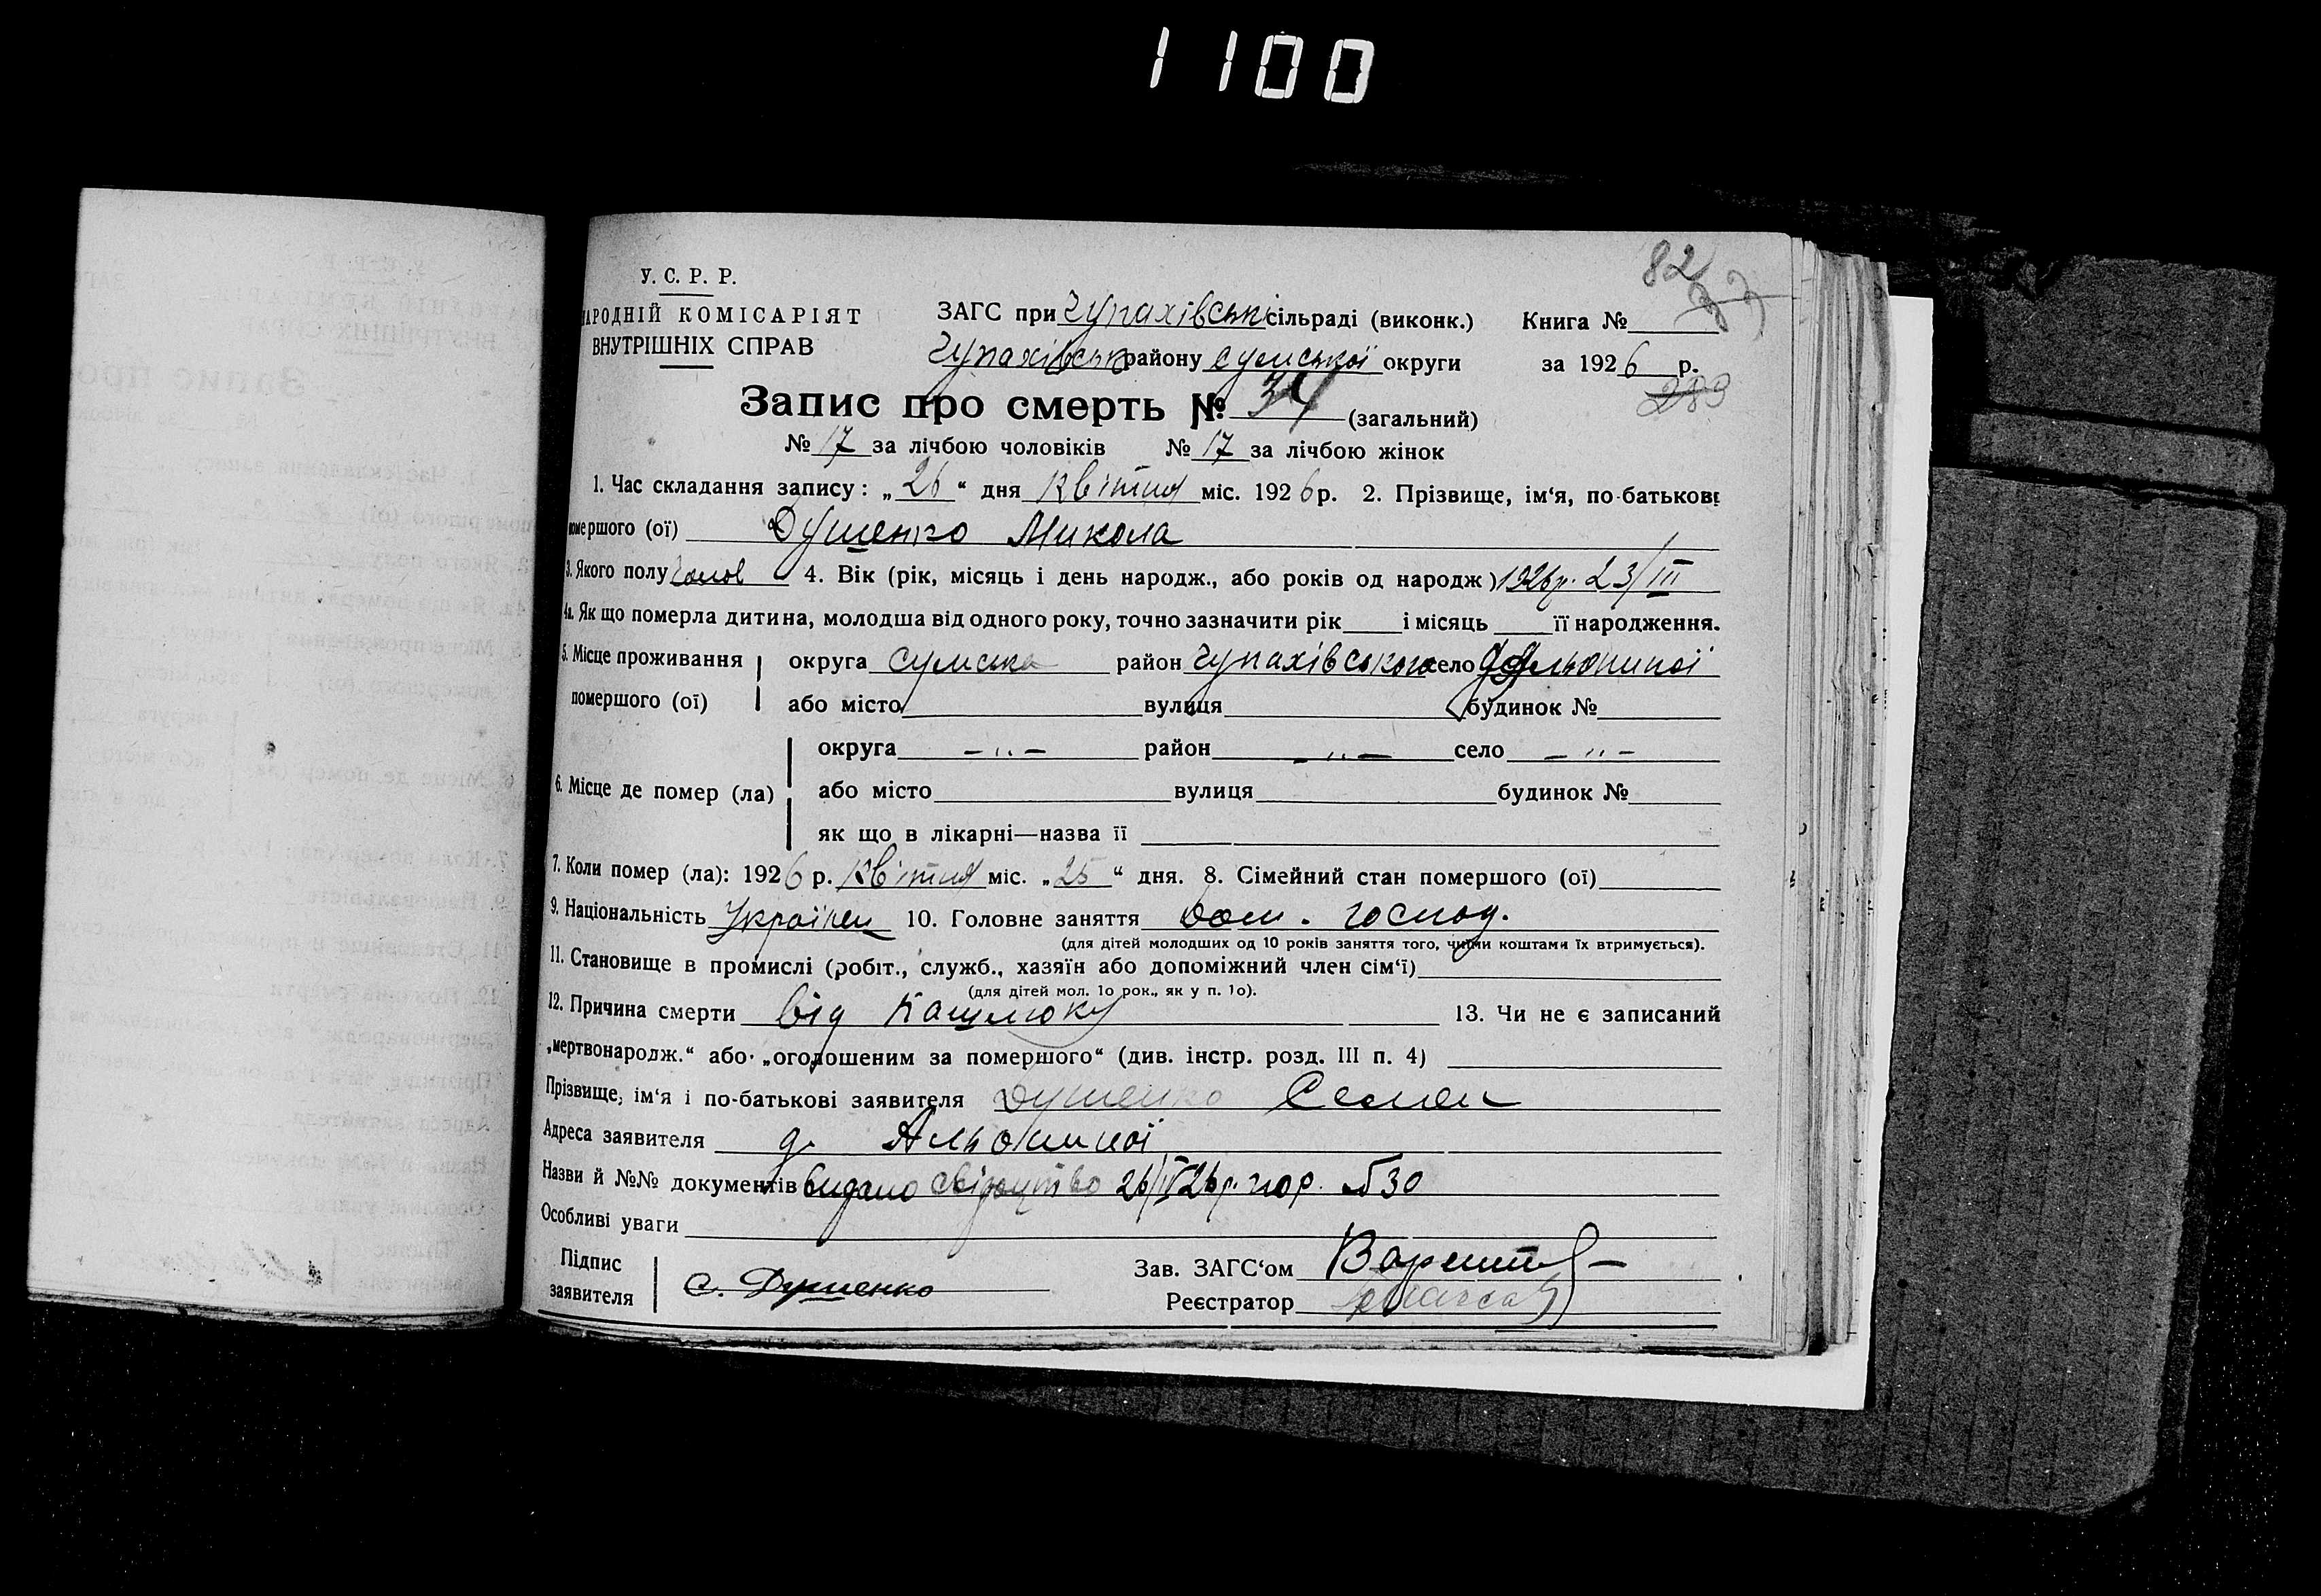 1100
82
У. С. Р. Р.
НАРОДНІЙ КОМІСАРІЯТ
ВНУТРІШНІХ СПРАВ
ЗАГС при Чупахівській сільраді (виконк.) Книга №
Чупахівськ району Сумської округи за 1926 р.
289
Запис про смерть № 34 (загальний)
№ 17 за лічбою чоловіків № 17 за лічбою жінок
1. Час складання запису: „26“ дня Квітня міс. 1926 р. 2. Прізвище, ім‘я, по-батькові
помершого (ої) Душенко Микола
3. Якого полу Чолов 4. Вік (рік, місяць і день народж., або років од народж) 1926р. 23/III
4а. Як що померла дитина, молодша від одного року, точно зазначити рік і місяць її народження.
5. Місце проживання округа Сумська район Чупахівського село
помершого (ої) або місто вулиця будинок №
округа -„- район -„- село -„-
6. Місце де помер (ла) або місто вулиця будинок №
як що в лікарні—назва її
7. Коли помер (ла): 1926 р. Квітня міс. „25“ дня. 8. Сімейний стан помершого (ої)
9. Національність Українец 10. Головне заняття Дом. господ.
(для дітей молодших од 10 років заняття того, чиїми коштами їх втримується).
11. Становище в промислі (робіт., служб., хазяїн або допоміжний член сім‘ї)
(для дітей мол. 1о рок., як у п. 1о).
12. Причина смерти від Кашлюку 13. Чи не є записаний
„мертвонародж.“ або „оголошеним за помершого“ (див. інстр. розд. III п. 4)
Прізвище, ім‘я і по-батькові заявителя Душенко Семен
Адреса заявителя д.
Назви й №№ документів видано свідоцтво 26/IV 26р. №30
Особливі уваги
Підпис
заявителя С. Душенко
Зав. ЗАГС‘ом
Реєстратор